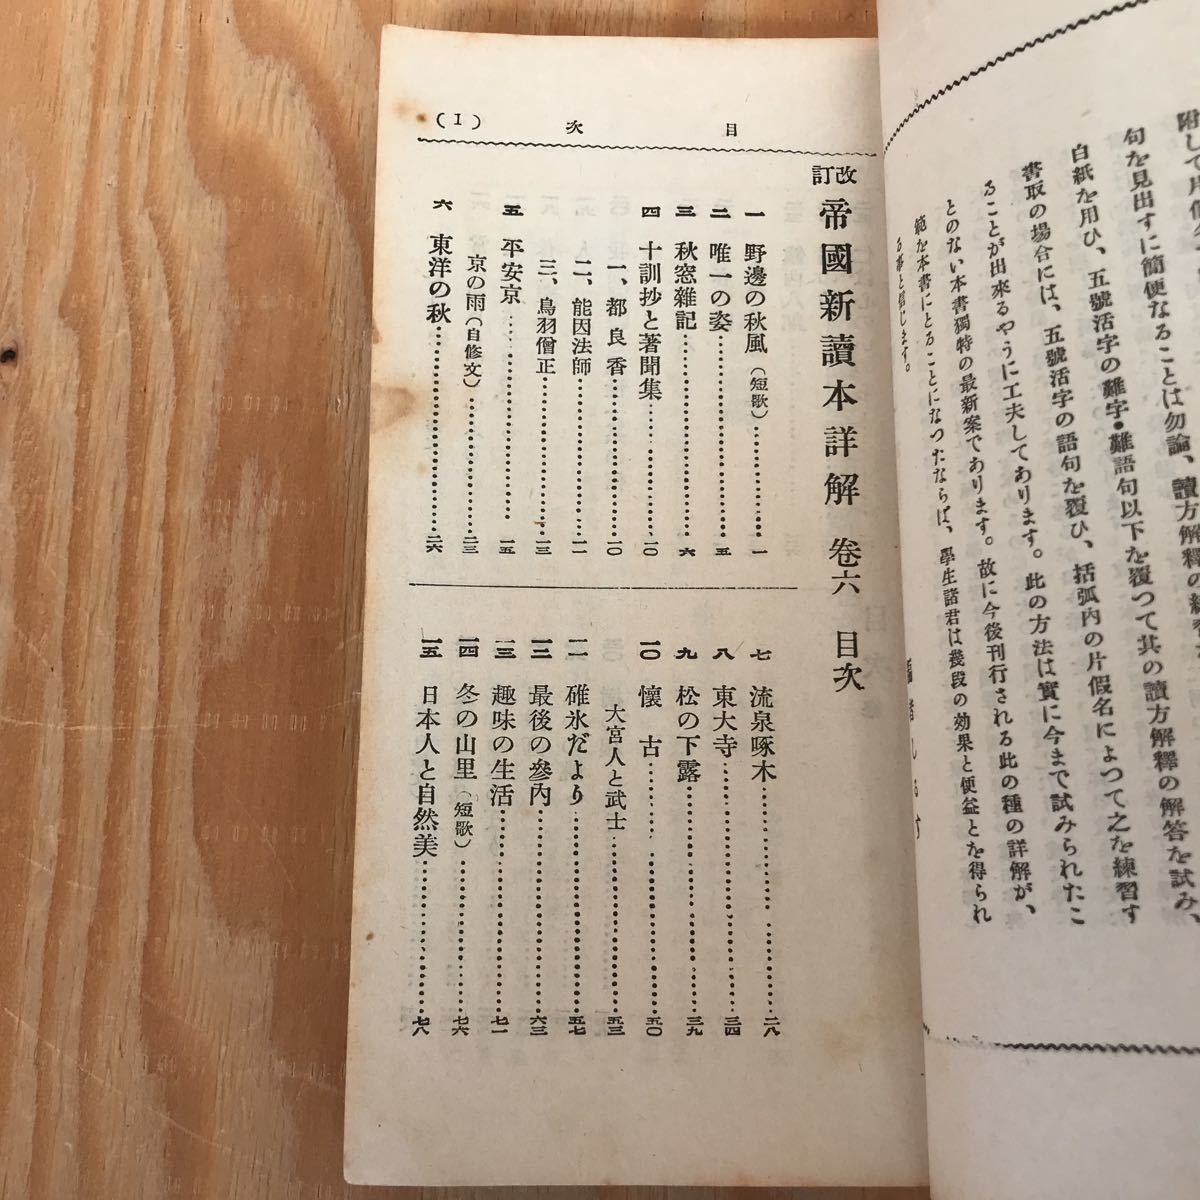 附して片假名
句を見出すに簡便なることは勿論、讀方解釋の練習
白紙を用ひ、五號活字の難字・難語句以下を覆つて其の讀方解釋の解答を試み、
書取の場合には、五號活字の語句を覆ひ、括弧内の片假名によつて之を練習す
ることが出來るやうに工夫してあります。此の方法は實に今まで試みられたこ
とのない本書獨特の最新案であります。故に今後刊行される此の種の詳解が、
範を本書にとることになつたならば、學生諸君は幾段の効果と便益とを得られ
る事と信じます。
編者しるす
目次
(1)
改訂 帝國新讀本詳解 卷六 目次
一 野邊の秋風(短歌)…………一
二 唯一の姿…………五
三 秋窓雜記…………六
四 十訓抄と著聞集…………一〇
一、都良香…………一〇
二、能因法師…………一一
三、鳥羽僧正…………一三
五 平安京…………一五
京の雨(自修文)…………二三
六 東洋の秋…………二六
七 流泉啄木…………二八
八 東大寺…………三四
九 松の下露…………三九
一〇 懷古…………五〇
大宮人と武士…………五三
一一 碓氷だより…………五七
一二 最後の參内…………六三
一三 趣味の生活…………七一
一四 冬の山里(短歌)…………七六
一五 日本人と自然美…………七八